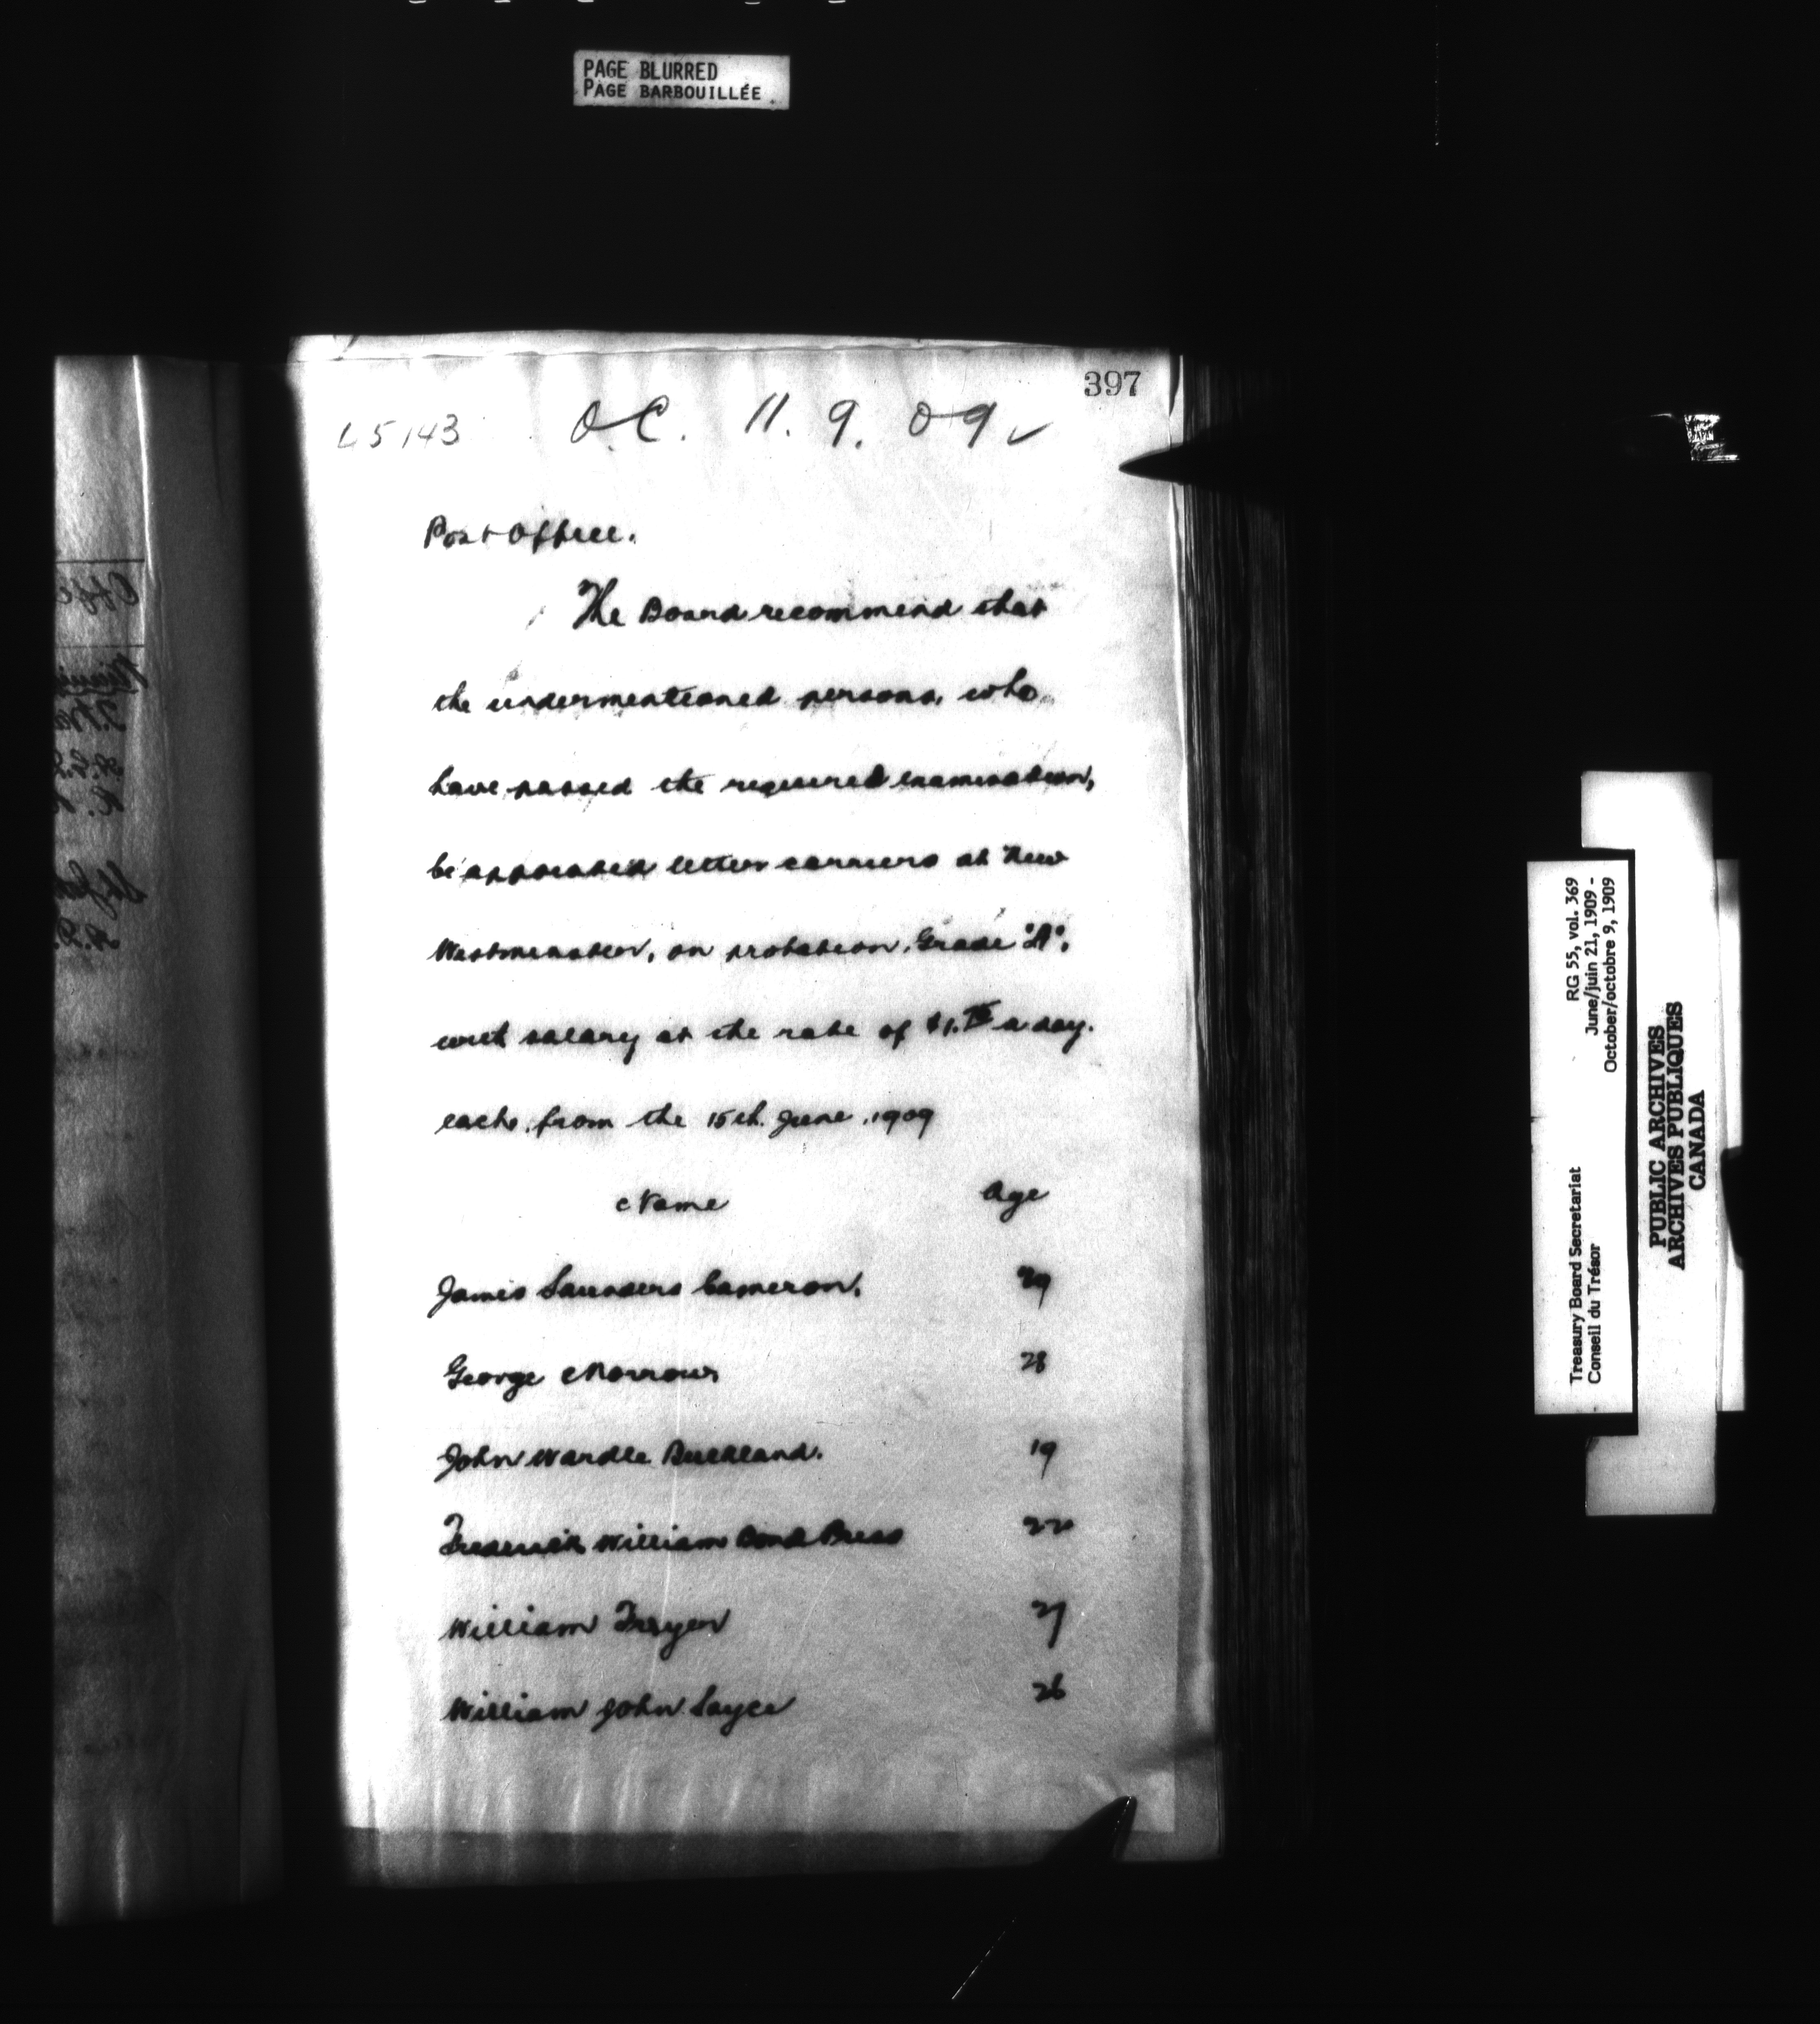 PAGE BLURRED
PAGE BARBOUILLÉE
397
O.C. 11. 9. 09
Post Office.
The Board recommend that
the undermentioned persons, who
have passed the required examination,
be appointed letter carriers at New
Westminster, on probation, Grade "A",
with salary at the rate of $1. a day.
each, from the 15th. June, 1909
Name Age
James Saunders Cameron. 29
George Morrow 28
John Wardle Buckland. 19
Frederick William Bond Press 22
William Fryer 27
William John Sayce 26
Treasury Board Secretariat RG 55, vol. 369
Conseil du Trésor June/juin 21, 1909 -
October/octobre 9, 1909
PUBLIC ARCHIVES
ARCHIVES PUBLIQUES
CANADA